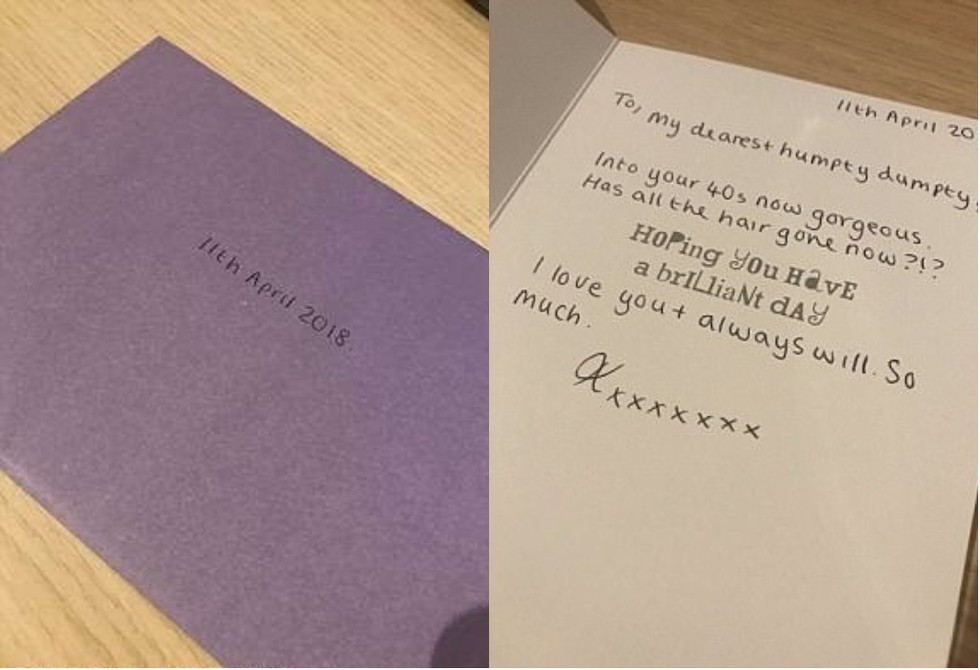 11th April 2018.
11th April 20
To, my dearest humpty dumpty,
Into your 40s now gorgeous.
Has all the hair gone now?!?
HOPing yOu HavE
a brILliaNt dAy
I love you + always will. So
much.
xxxxxxxx